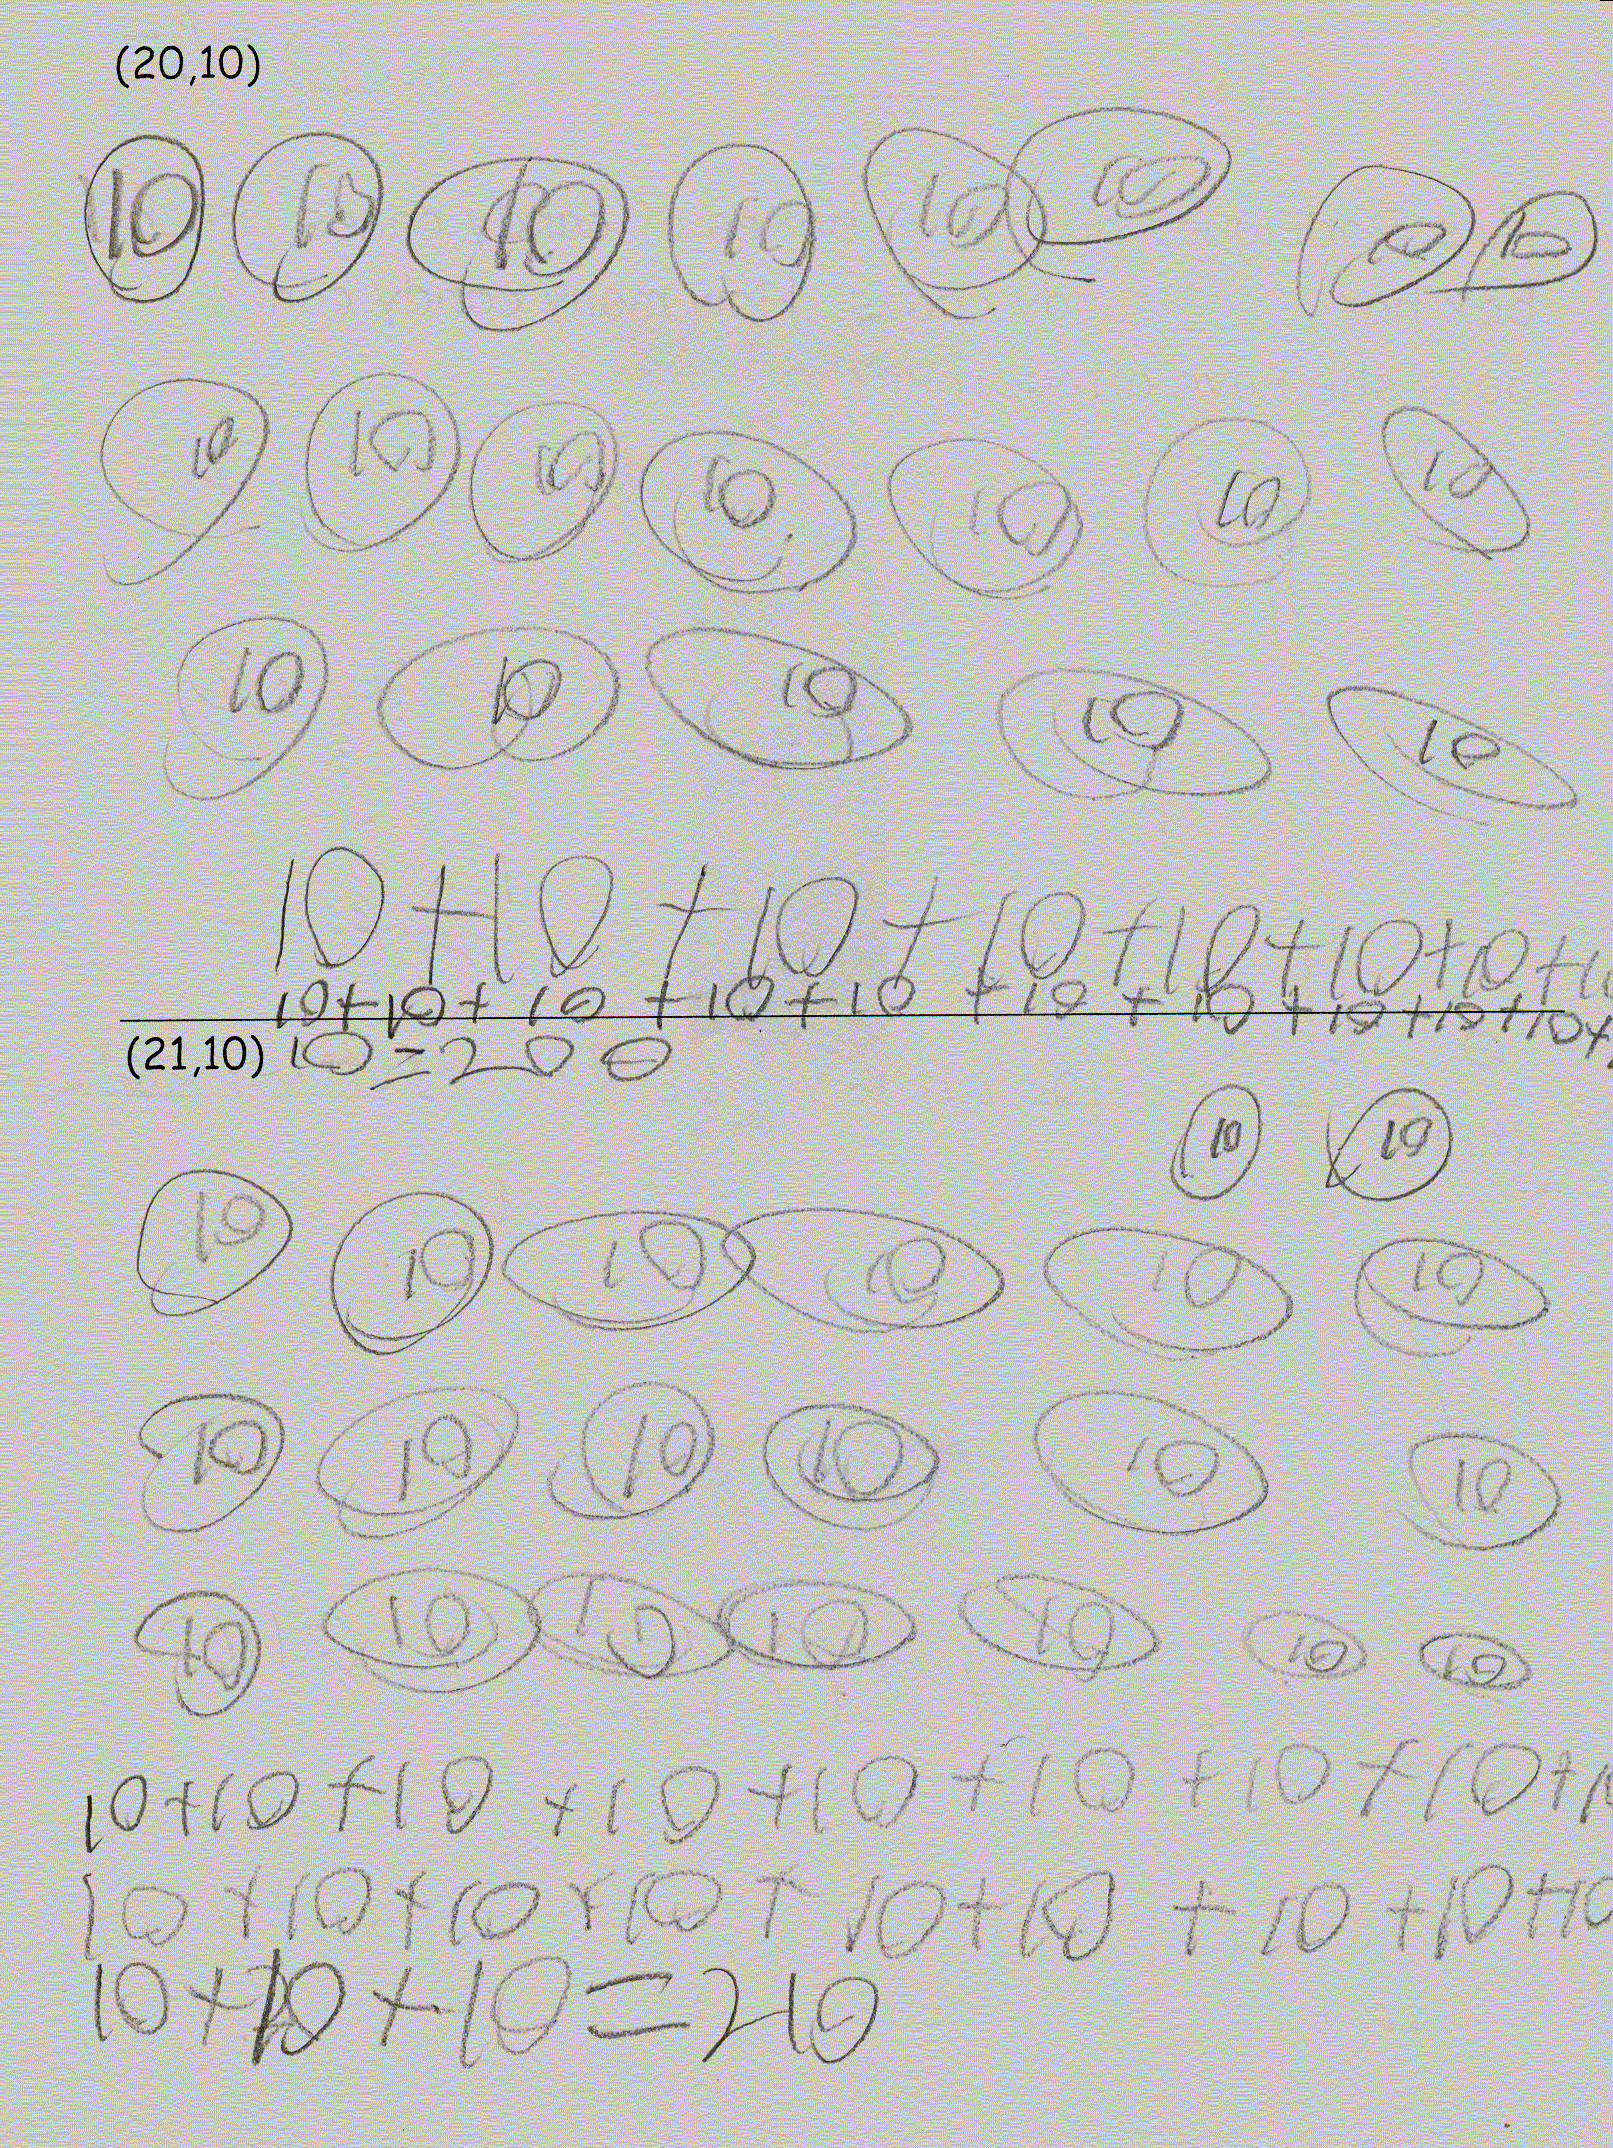 (20,10)
10 10 10 10 10 10 10 10
10 10 10 10 10 10 10
10 10 10 10 10
10+10+10+10+10+10+10+10
10+10+10+10+10+10+10+10+10+10+
(21,10) 10=200
10 10
10 10 10 10 10 10
10 10 10 10 10 10
10 10 10 10 10 10 10
10+10+10+10+10+10+10+10+1
10+10+10+10+10+10+10+10+10
10+10+10=210